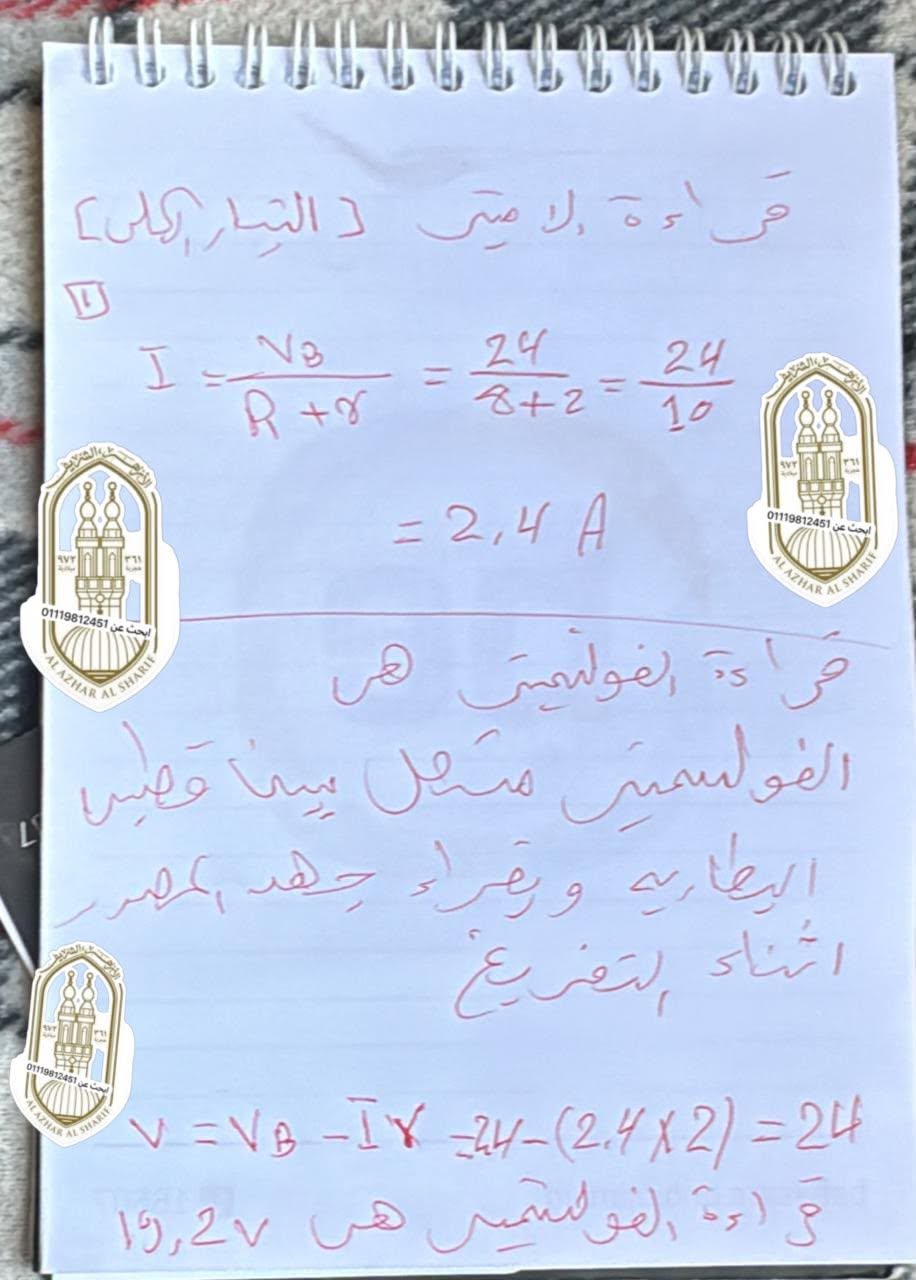 قراءة الاميتر [التيار الكلى]
١
I = VB / R + r = 24 / 8+2 = 24 / 10
= 2,4 A
قراءة الفولتميتر هى
الفولتميتر متصل بين قطبى
البطاريه ويقراء جهد المصدر
اثناء التفريغ
V = VB - Ir = 24 - (2.4 X 2) = 24
قراءة الفولتميتر هى 19,2v
الأزهر الشريف
٩٧٢ ميلادية
٣٦١ هجرية
ابحث عن 01119812451
AL AZHAR AL SHARIF
الأزهر الشريف
٩٧٢ ميلادية
٣٦١ هجرية
ابحث عن 01119812451
AL AZHAR AL SHARIF
الأزهر الشريف
٩٧٢ ميلادية
٣٦١ هجرية
ابحث عن 01119812451
AL AZHAR AL SHARIF